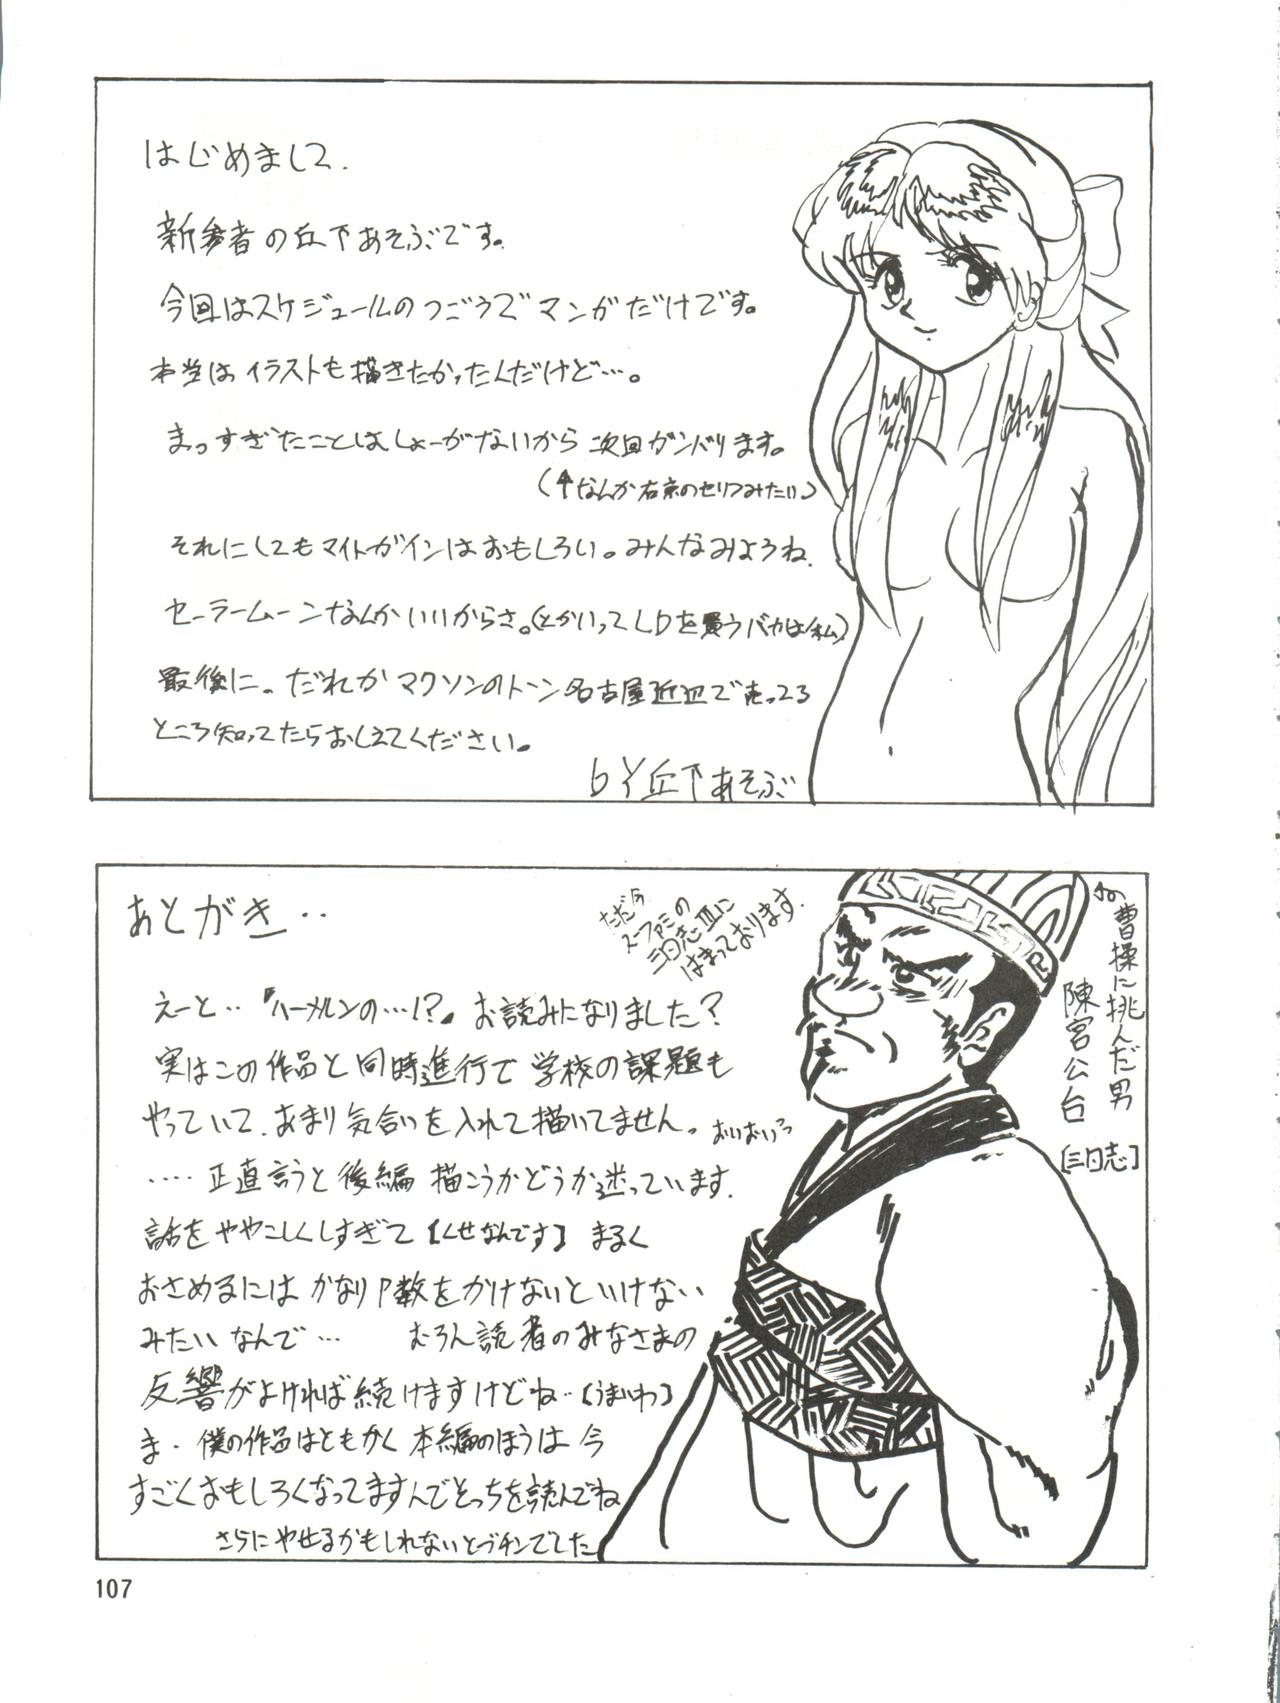 はじめまして.
新参者の丘下あそぶです。
今回はスケジュールのつごうでマンガだけです。
本当はイラストも描きたかったんだけど…。
まっすぎたことはしょーがないから次回ガンバります。
(↑なんか右京のセリフみたい)
それにしてもマイトガインはおもしろい。みんなみようね.
セーラームーンなんかいいからさ。(とかいってLDを買うバカは私)
最後に。だれかマクソンのトーン名古屋近辺で売ってる
ところ知ってたらおしえてください。
by 丘下あそぶ
あとがき‥
ただ今
スーファミの
三国志Ⅲに
はまっております.
あの曹操に挑んだ男
陳宮公台
[三国志]
えーと‥『ハーメルンの…!?』お読みになりました?
実はこの作品と同時進行で学校の課題も
やっていて.あまり気合いを入れて描いてません。おいおいっ
‥‥正直言うと後編描こうかどうか迷っています.
話をややこしくしすぎて【くせなんです】まるく
おさめるにはかなりP数をかけないといけない
みたいなんで… むろん読者のみなさまの
反響がよければ続けますけどね‥【うまいわ】
ま・僕の作品はともかく本編のほうは今
すごくおもしろくなってますんでそっちを読んでね
さらにやせるかもしれないとブチンでした
107